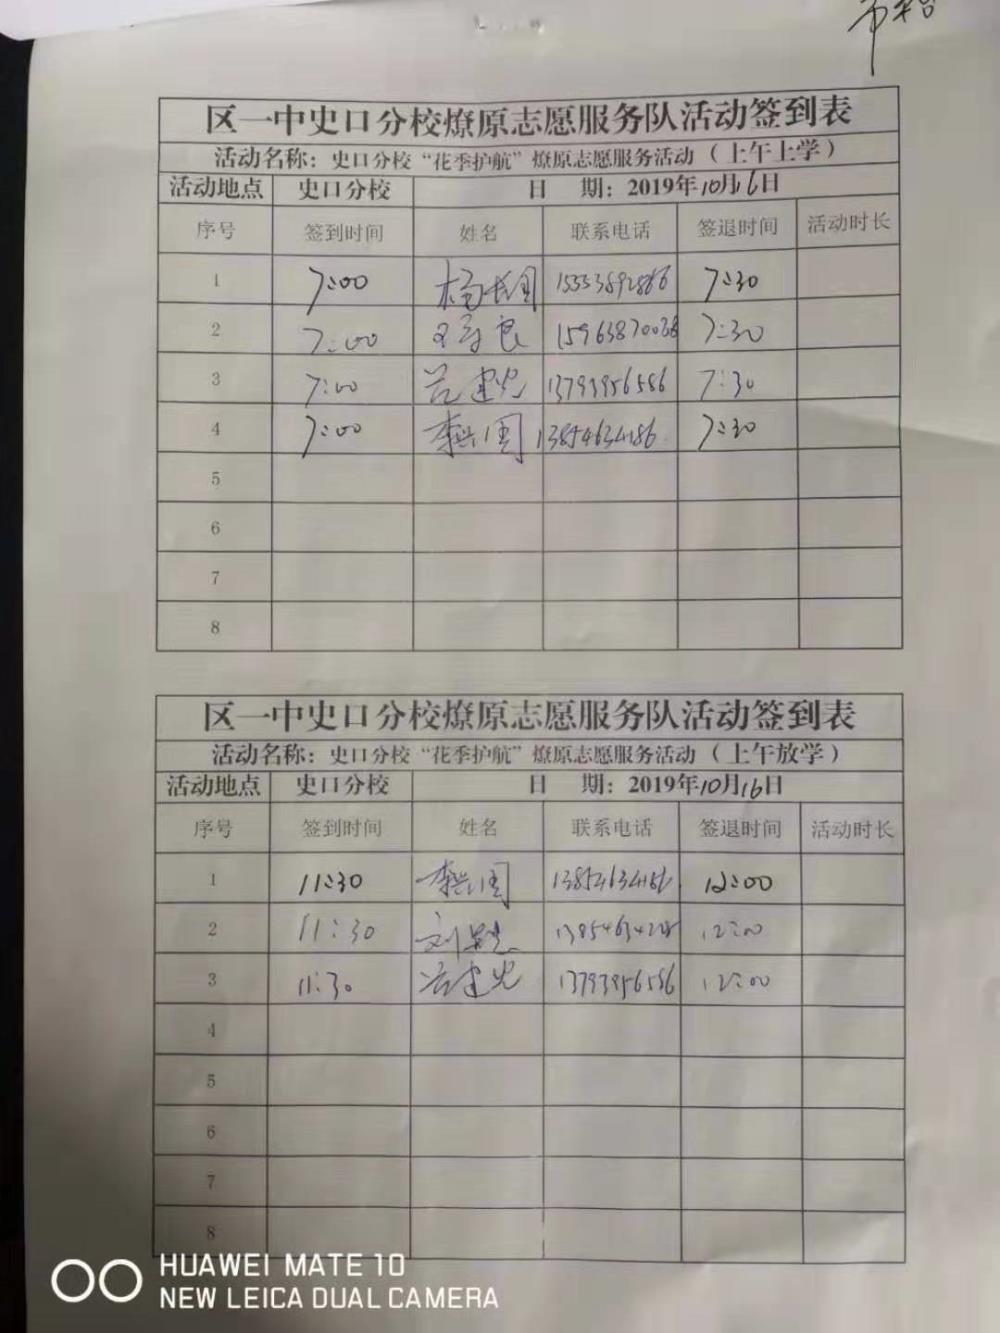 区一中史口分校燎原志愿服务队活动签到表
活动名称：史口分校“花季护航”燎原志愿服务活动（上午上学）
活动地点 史口分校 日 期：2019年10月16日
序号 签到时间 姓名 联系电话 签退时间 活动时长
1 7:00 7:30
2 7:00 15963870038 7:30
3 7:00 13793956586 7:30
4 7:00 李兴国 13854634186 7:30
5
6
7
8
区一中史口分校燎原志愿服务队活动签到表
活动名称：史口分校“花季护航”燎原志愿服务活动（上午放学）
活动地点 史口分校 日 期：2019年10月16日
序号 签到时间 姓名 联系电话 签退时间 活动时长
1 11:30 李兴国 13854634186 12:00
2 11:30 12:00
3 11:30 13793956586 12:00
4
5
6
7
8
HUAWEI MATE 10
NEW LEICA DUAL CAMERA